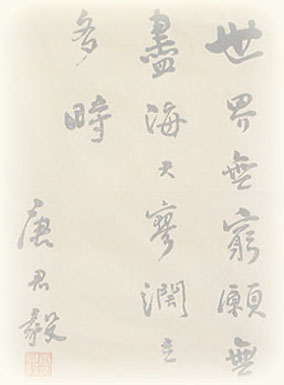 世界無窮願無
盡海天寥濶立
多時
唐君毅